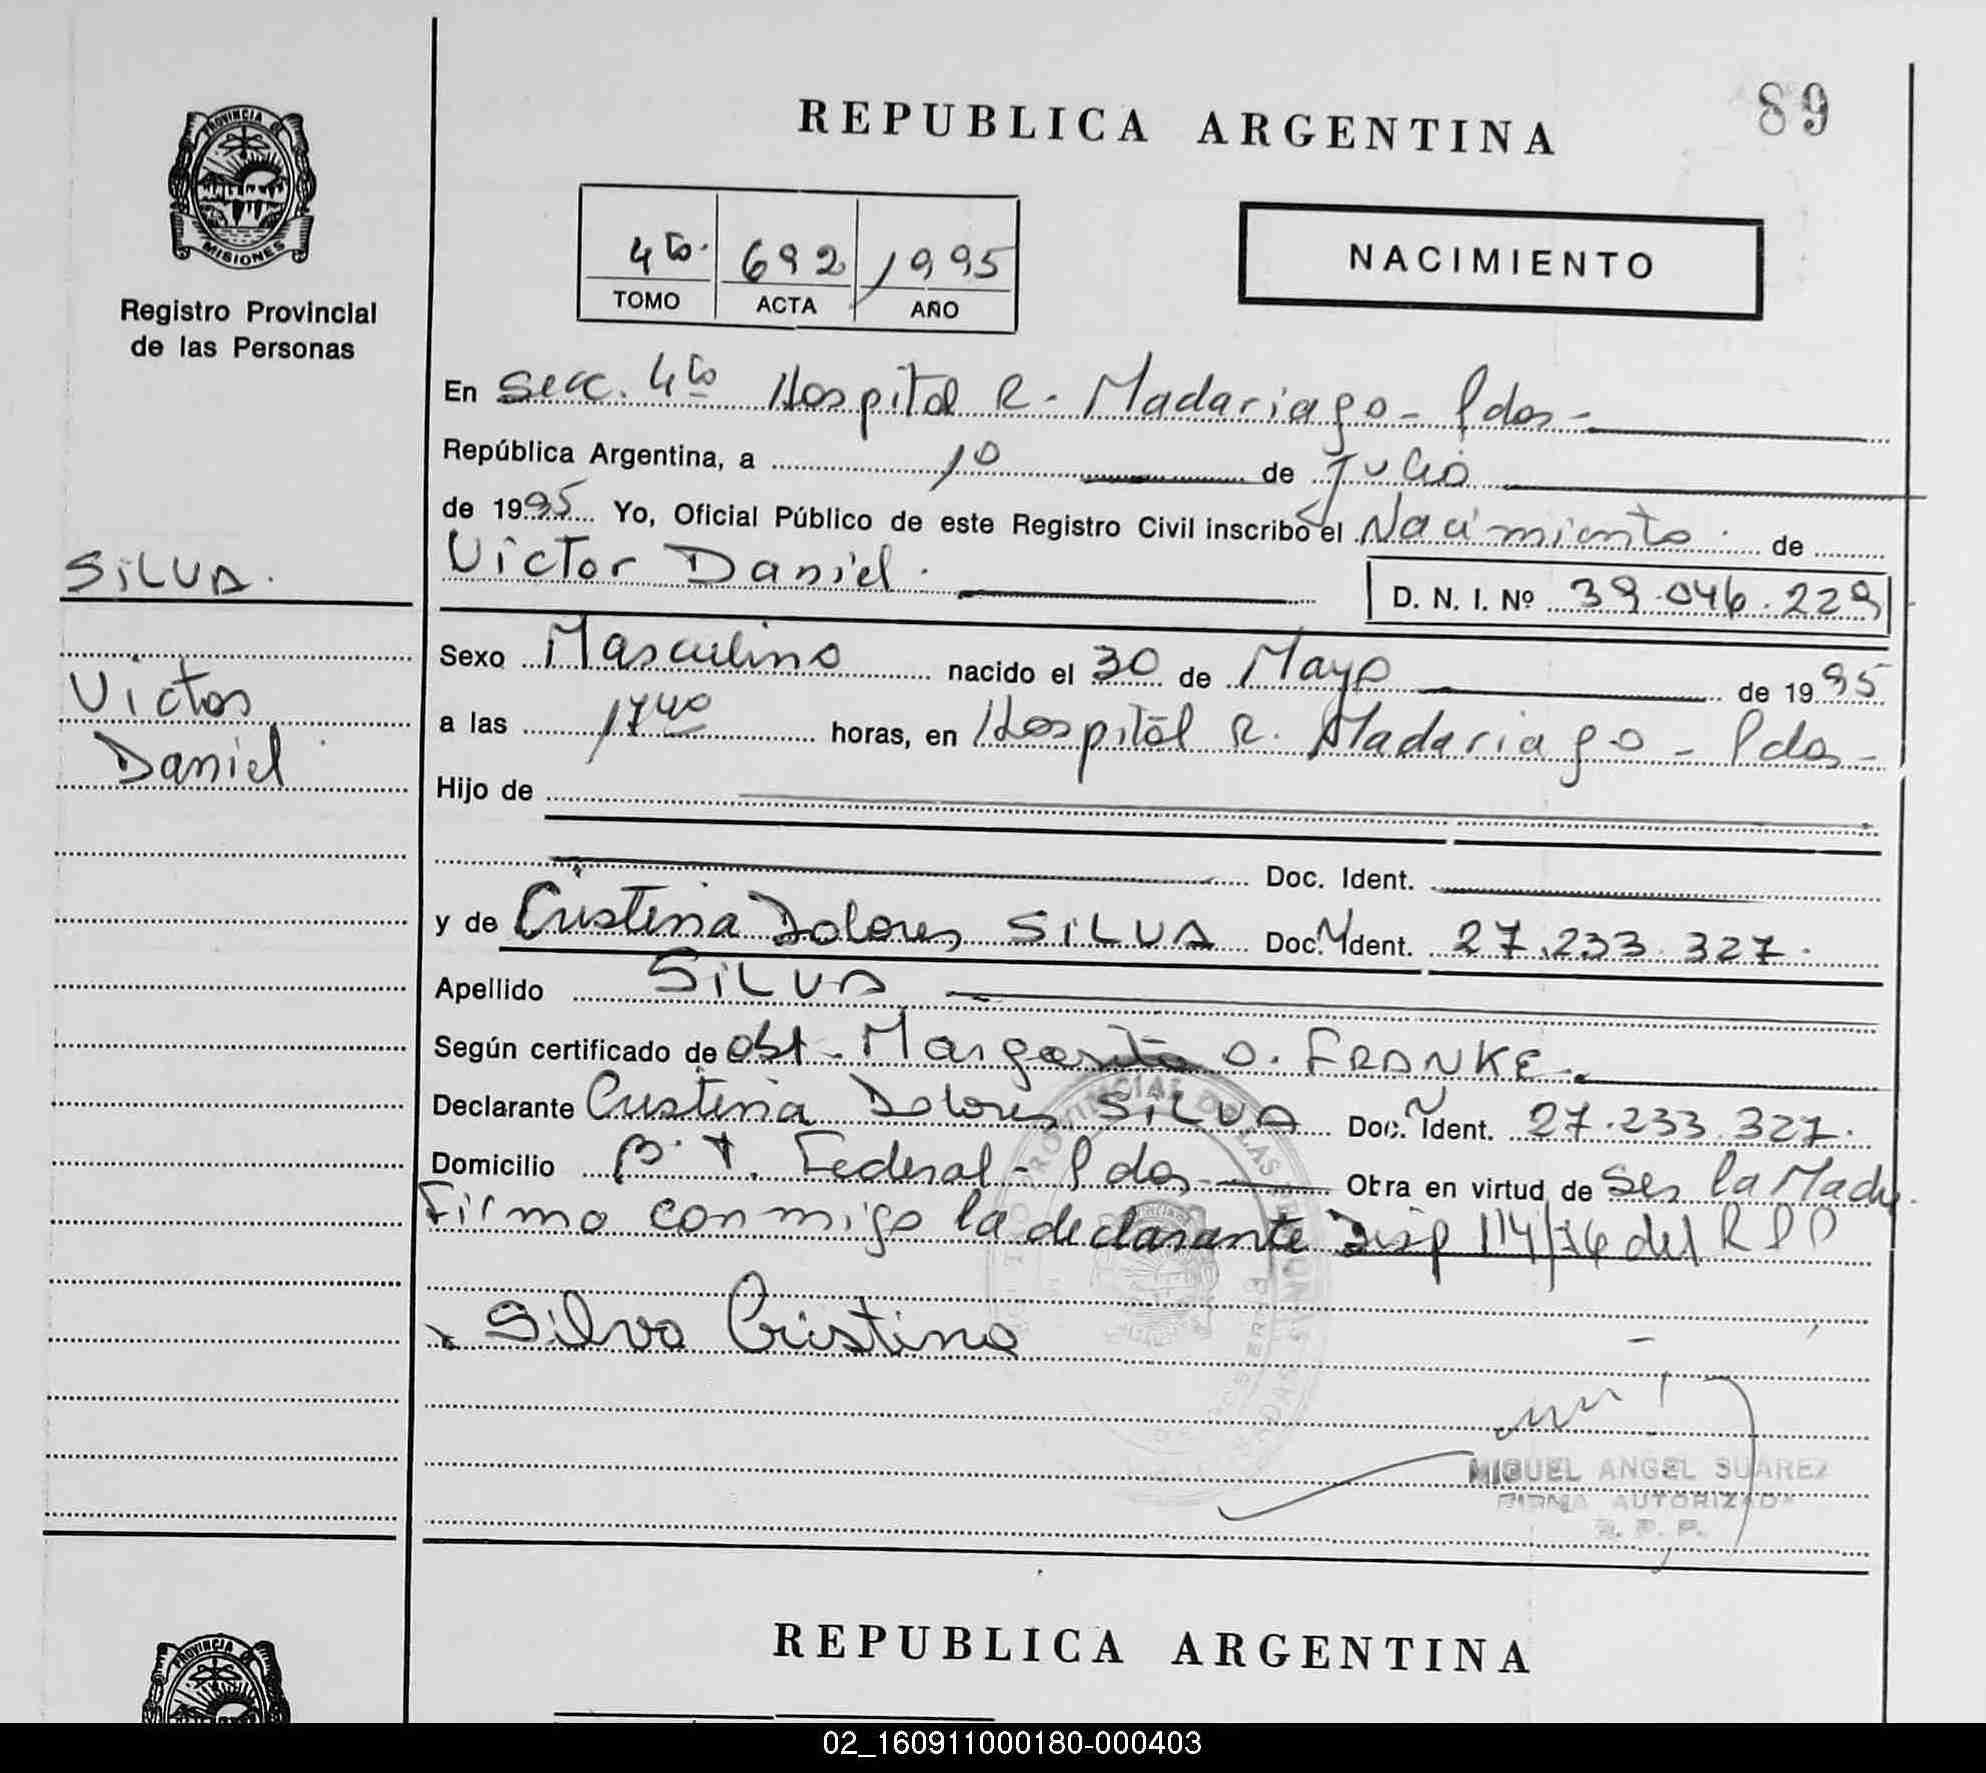 89
REPUBLICA ARGENTINA
PROVINCIA DE
MISIONES
Registro Provincial
de las Personas
4to. 692 1995
TOMO ACTA AÑO
NACIMIENTO
En Secc. 4to Hospital R. Madariaga - Pdas -
República Argentina, a 10 de Julio
de 1995 Yo, Oficial Público de este Registro Civil inscribo el Nacimiento de
SILVA.
Victor Daniel. D. N. I. Nº 39.046.229
Victor
Daniel
Sexo Masculino nacido el 30 de Mayo de 1995
a las 17 40 horas, en Hospital R. Madariaga - Pdas -
Hijo de
Doc. Ident.
y de Cristina Dolores SILVA Doc. N Ident. 27.233.327.
Apellido SILVA
Según certificado de obst. Margarita O. FRANKE.
Declarante Cristina Dolores SILVA Doc. Ident. 27.233.327.
Domicilio Bº T. Federal - Pdas Obra en virtud de Ser la Madre.
Firma conmigo la declarante Disp 114/76 del RPP
x Silva Cristina
MIGUEL ANGEL SUAREZ
FIRMA AUTORIZADA
R. P. P.
REPUBLICA ARGENTINA
PROVINCIA
02_160911000180-000403